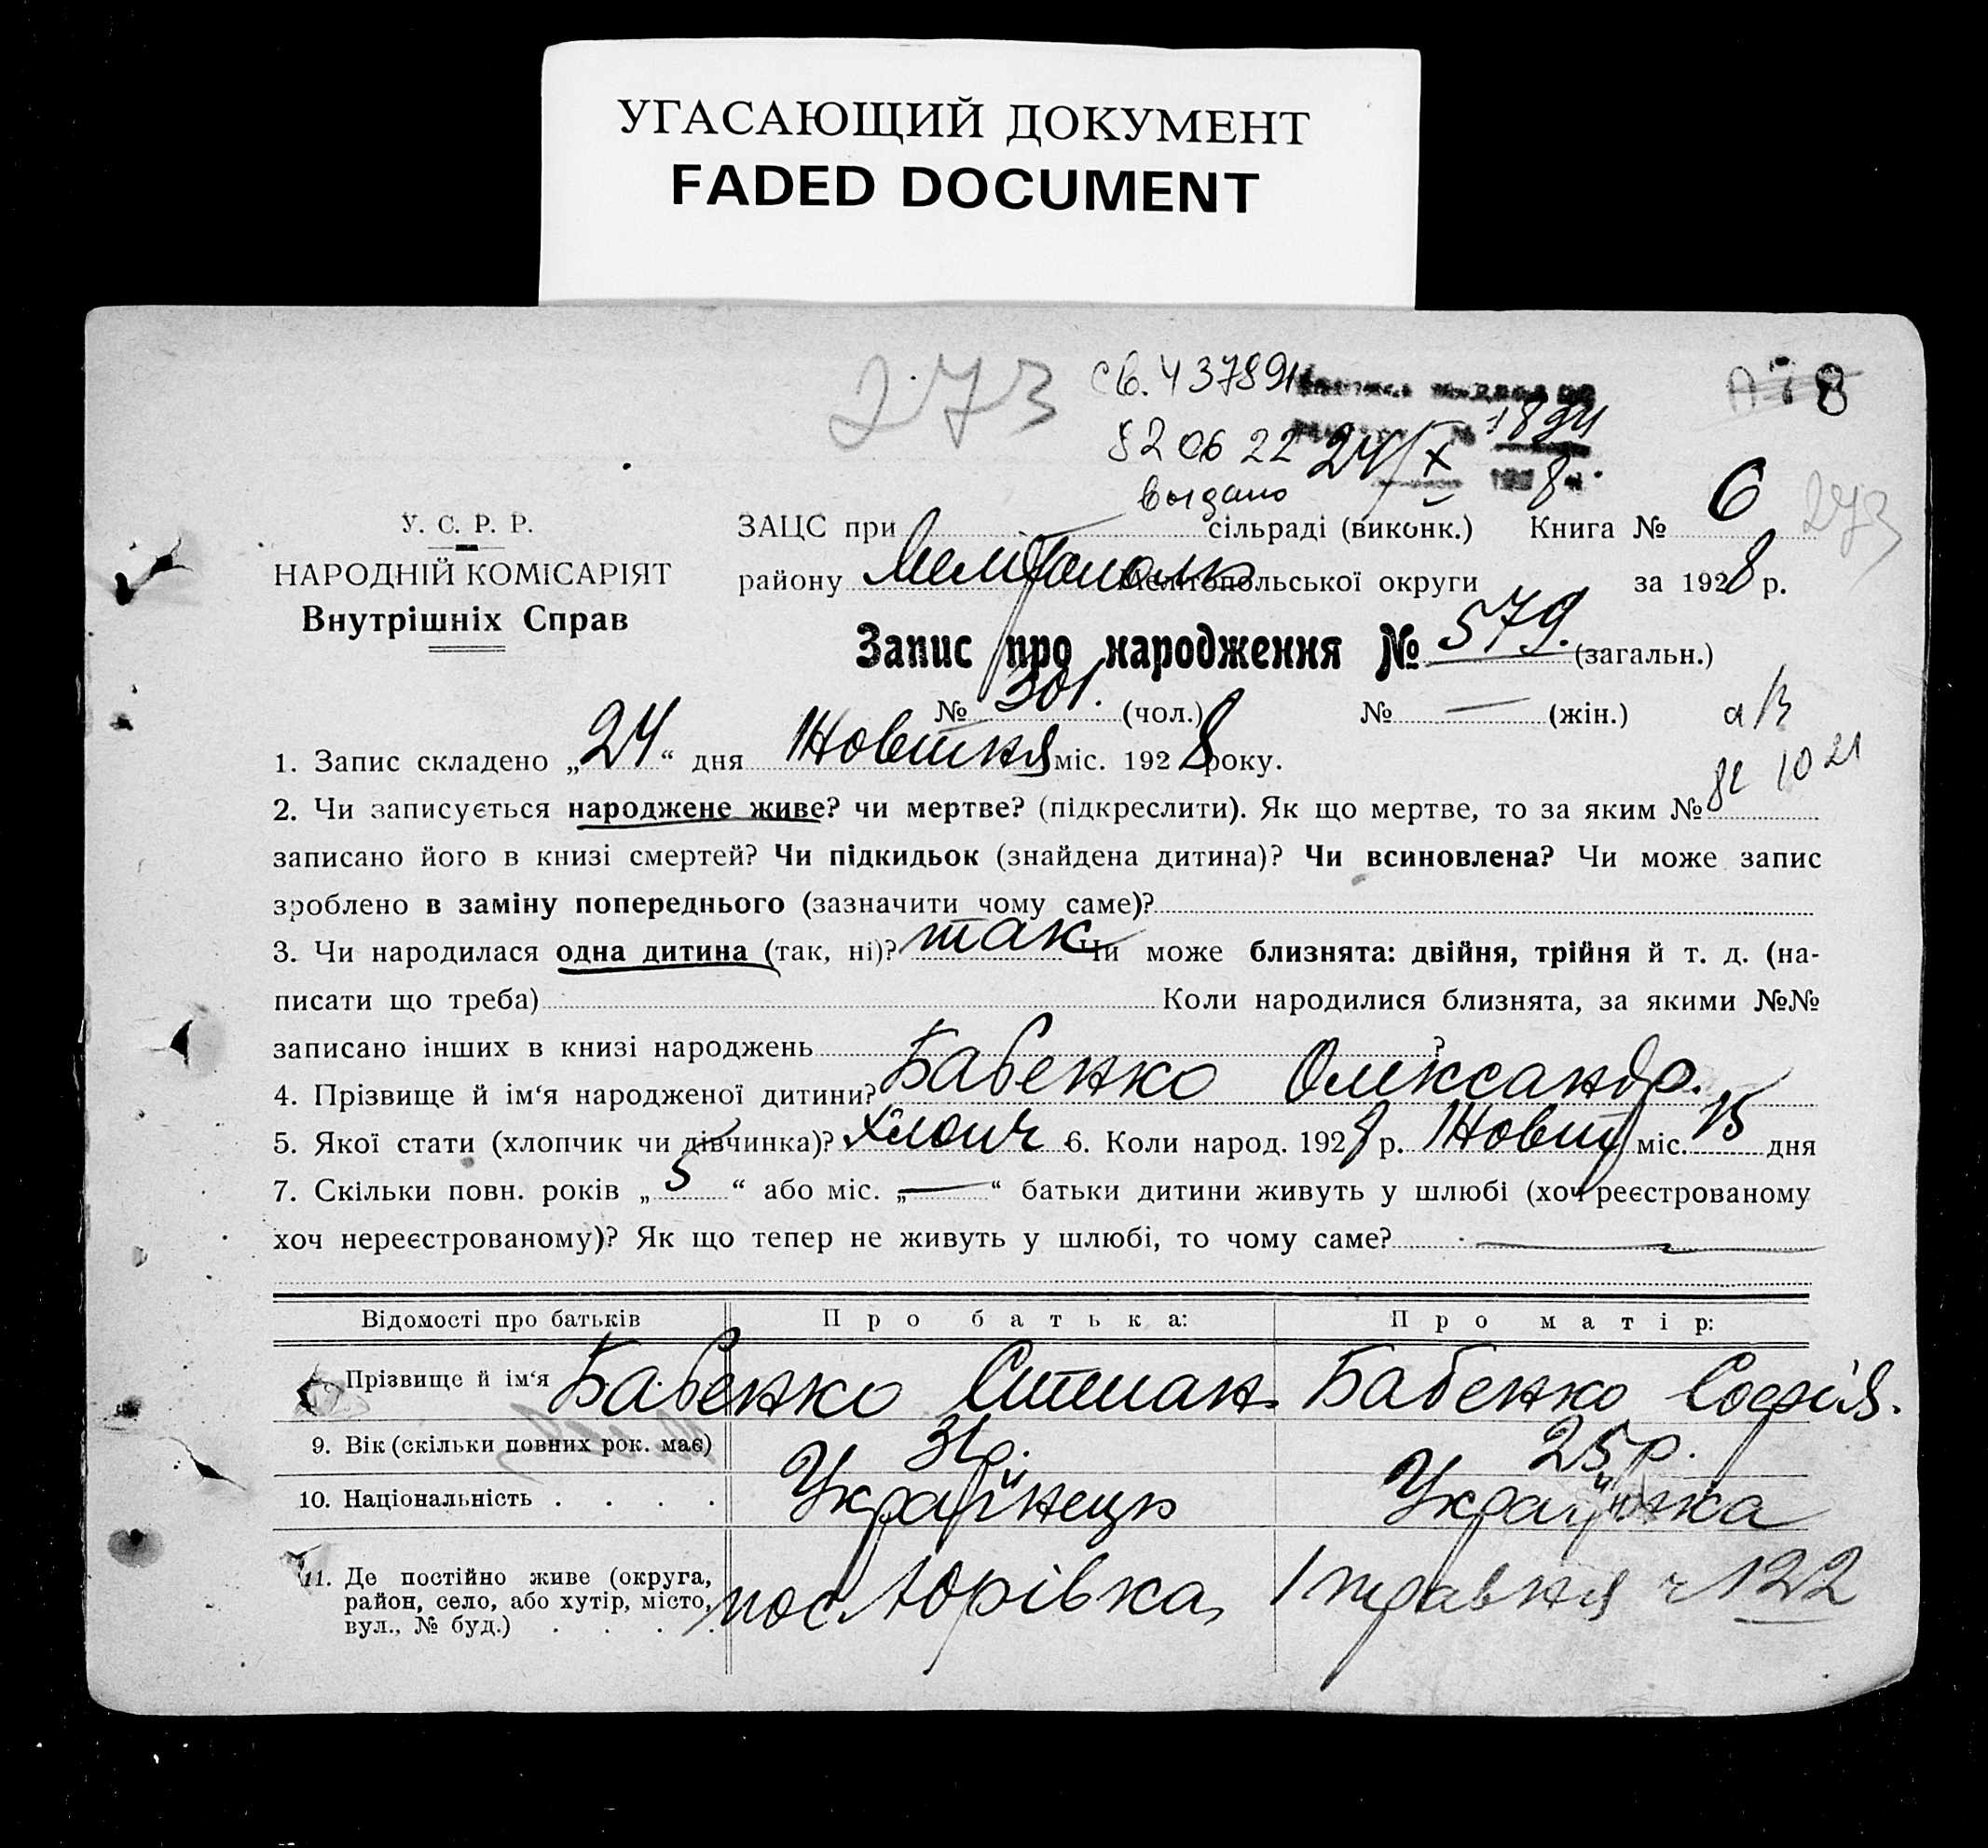 УГАСАЮЩИЙ ДОКУМЕНТ
FADED DOCUMENT
273
св. 437891
82 06 22 24/X 1894
выдано 8
8
У. С. Р. Р.
НАРОДНІЙ КОМІСАРІЯТ
Внутрішніх Справ
ЗАЦС при сільраді (виконк.) Книга № 6 273
району Мелітополь Мелітопольської округи за 1928 р.
Запис про народження № 579. (загальн.)
№ 301. (чол.) № — (жін.)
82 10 21
1. Запис складено „24“ дня Жовтня міс. 1928 року.
2. Чи записується народжене живе? чи мертве? (підкреслити). Як що мертве, то за яким №
записано його в книзі смертей? Чи підкидьок (знайдена дитина)? Чи всиновлена? Чи може запис
зроблено в заміну попереднього (зазначити чому саме)?
3. Чи народилася одна дитина (так, ні)? так Чи може близнята: двійня, трійня й т. д. (на-
писати що треба) Коли народилися близнята, за якими №№
записано інших в книзі народжень ?
4. Прізвище й ім‘я народженої дитини? Бабенко Олександр.
5. Якої стати (хлопчик чи дівчинка)? хлопч 6. Коли народ. 1928 р. Жовт міс. 15 дня
7. Скільки повн. років „5“ або міс. „—“ батьки дитини живуть у шлюбі (хоч реєстрованому
хоч нереєстрованому)? Як що тепер не живуть у шлюбі, то чому саме? —
Відомості про батьків Про батька: Про матір:
Прізвище й ім‘я Бабенко Степан. Бабенко Софія.
9. Вік (скільки повних рок. має) 31р. 25р.
10. Національність . . . . Українець Українка
11. Де постійно живе (округа,
район, село, або хутір, місто,
вул., № буд.) . . . . пос Юрівка, 1 травня ч 122